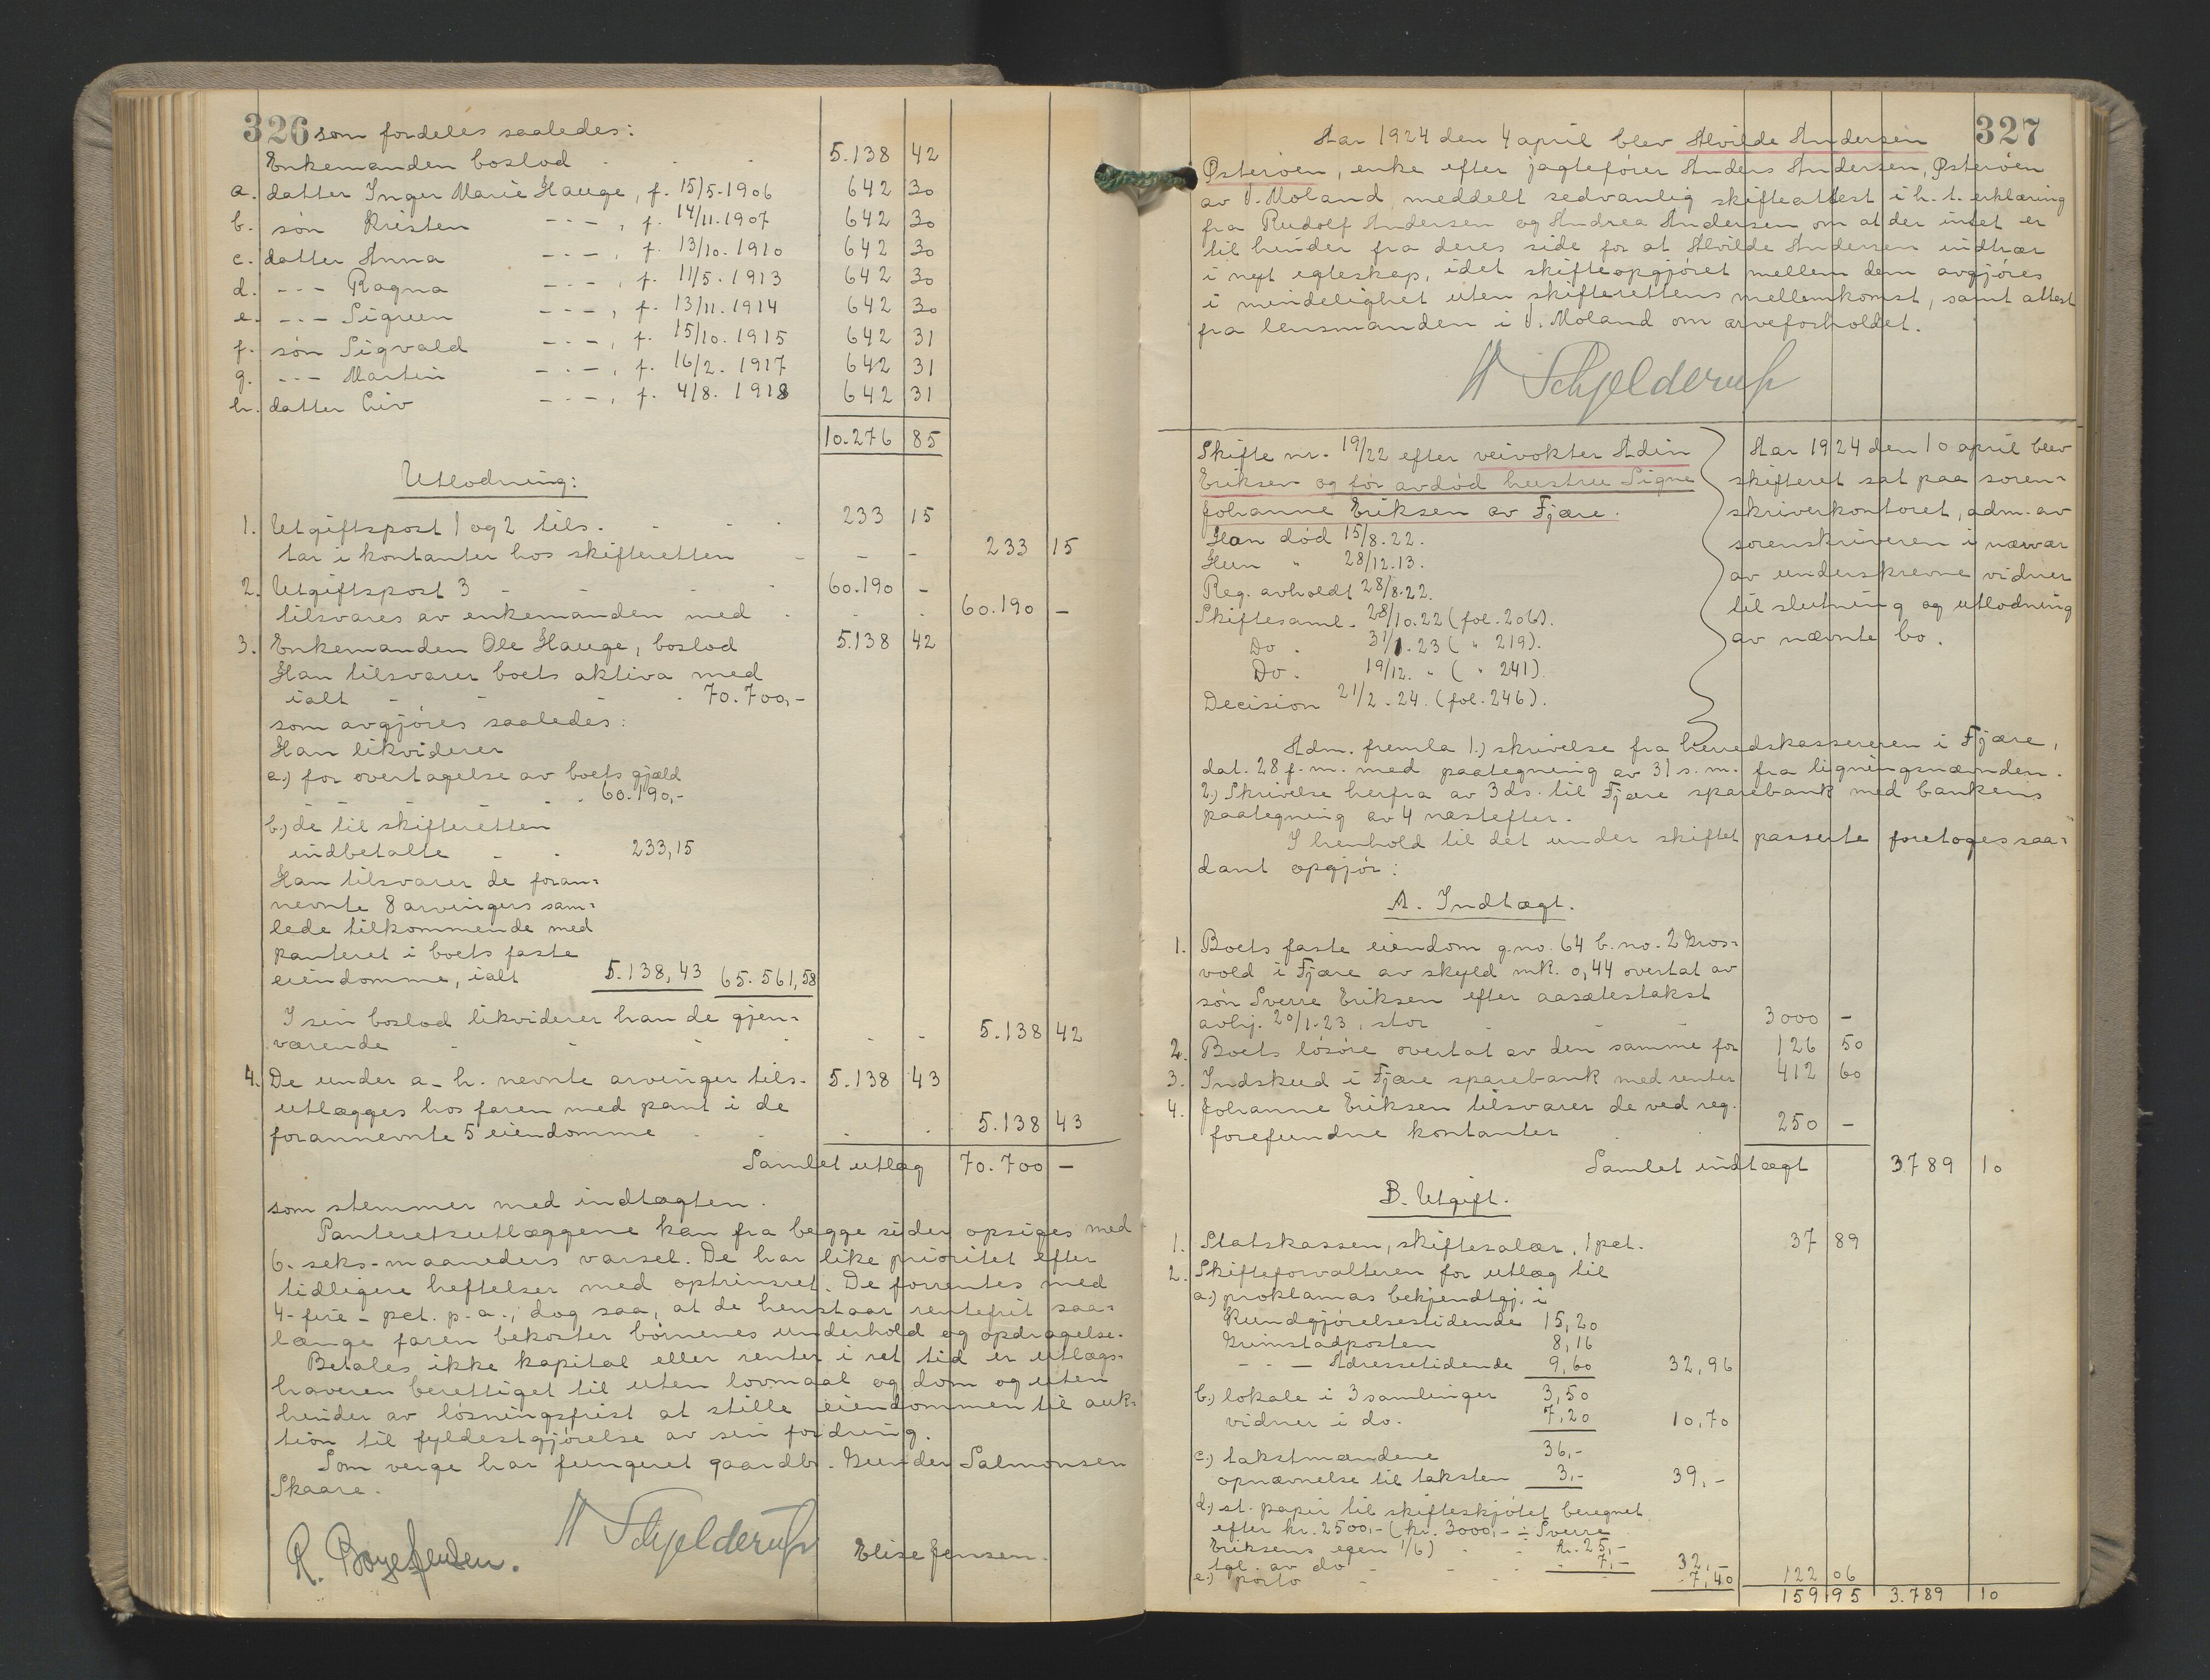 326 som fordeles saaledes:
Enkemanden boslod - - - 5.138 42
a. datter Inger Marie Hauge, f. 15/5-1906 642 30
b. søn Kristen - - - , f. 14/11.1907 642 30
c. datter Anna - - - , f. 13/10.1910 642 30
d. - - - Ragna - - - , f. 11/5.1913 642 30
e. - - - Sigrun - - - , f. 13/11.1914 642 30
f. søn Sigvald - - - , f. 15/10.1915 642 31
g. - - - Martin - - - , f. 16/2.1917 642 31
h. datter Liv - - - , f. 4/8.1918 642 31
10.276 85
Utlodning:
1. Utgiftspost 1 og 2 tils. - - - 233 15
tar i kontanter hos skifteretten - - - 233 15
2. Utgiftspost 3 - - - 60.190 -
tilsvares av enkemanden med - - - 60.190 -
3. Enkemanden Ole Hauge, boslod 5.138 42
Han tilsvarer boets aktiva med
ialt - - - 70.700,-
som avgjøres saaledes:
Han likviderer
a.) for overtagelse av boets gjæld
- - - - 60.190,-
b.) de til skifteretten
indbetalte - - 233,15
Han tilsvarer de foran-
nevnte 8 arvingers sam-
lede tilkommende med
panteret i boets faste
eiendomme, ialt 5.138,43 65.561,58
I sin boslod likviderer han de gjen-
værende - - - - - - 5.138 42
4. De under a-h. nevnte arvinger tils. 5.138 43
utlægges hos faren med pant i de
forannevnte 5 eiendomme - - - - 5.138 43
Samlet utlæg 70.700 -
som stemmer med indtægten.
Panteretsutlæggene kan fra begge sider opsiges med
6-seks-maaneders varsel. De har like prioritet efter
tidligere heftelser med optrinsret. De forrentes med
4-fire-pct. p.a., dog saa, at de henstaar rentefrit saa-
længe faren bekoster børnenes underhold og opdragelse.
Betales ikke kapital eller renter i ret tid er utlægs-
haveren berettiget til uten lovmaal og dom og uten
hinder av løsningsfrist at stille eiendommen til auk-
tion til fyldestgjørelse av sin fordring.
Som verge har fungeret gaardbr. Gunder Salmonsen
Skaare.
R. Boye Jensen. A Schjelderup Elise Jensen.
327
Aar 1924 den 4 april blev Alvilde Andersen
Østerøen, enke efter jagtefører Anders Andersen, Østerøen
av V. Moland, meddelt sedvanlig skifteattest i h.t. erklæring
fra Rudolf Andersen og Andrea Andersen om at der intet er
til hinder fra deres side for at Alvilde Andersen indtrær
i nyt egteskap, idet skifteopgjøret mellem dem avgjøres
i mindelighet uten skifterettens mellemkomst, samt attest
fra lensmanden i V. Moland om arveforholdet.
A Schjelderup
Skifte nr. 19/22 efter veivokter Adin
Eriksen og før avdød hustru Signe
Johanne Eriksen av Fjære.
Han død 15/8.22.
Hun " 28/12.13.
Reg. avholdt 28/8.22.
Skiftesaml. 28/10.22 (fol. 206).
Do. 31/1.23 ( " 219).
Do. 19/12. " ( " 241).
Decision 21/2.24. (fol. 246).
Aar 1924 den 10 april blev
skifteret sat paa soren-
skriverkontoret, adm. av
sorenskriveren i nærvær
av underskrevne vidner
til slutning og utlodning
av nævnte bo.
Adm. fremla 1.) skrivelse fra herredskassereren i Fjære,
dat. 28 f.m. med paategning av 31 s.m. fra ligningsnævnden.
2.) Skrivelse herfra av 3 ds. til Fjære sparebank med bankens
paategning av 4 næstefter.
I henhold til det under skiftet passerte foretoges saa-
dant opgjør:
A. Indtægt.
1. Boets faste eiendom g.no. 64 b.no. 2 Gros-
vold i Fjære av skyld mk. 0,44 overtat av
søn Sverre Eriksen efter aasætestakst
avhj. 20/1.23, stor - - - 3000 -
2. Boets løsøre overtat av den samme for 126 50
3. Indskud i Fjære sparebank med renter 412 60
4. Johanne Eriksen tilsvarer de ved reg.
forefundne kontanter 250 -
Samlet indtægt 3789 10
B. Utgift.
1. Statskassen, skiftesalær, 1 pct. 37 89
2. Skifteforvalteren for utlæg til
a.) proklamas bekjendtgj. i
Kundgjørelsestidende 15,20
Grimstadposten 8,16
- - - Adressetidende 9,60 32,96
b.) lokale i 3 samlinger 3,50
vidner i do. 7,20 10,70
c.) takstmændene 36,-
opnævnelse til taksten 3,- 39,-
d.) st. papir til skifteskjøtet beregnet
efter kr. 2500,- (kr. 3000,- ÷ Sverre
Eriksens egen 1/6) - - kr. 25,-
tgl. av do - - - 7,- 32,-
e.) porto - - - 7,40 122 06
159 95 3.789 10